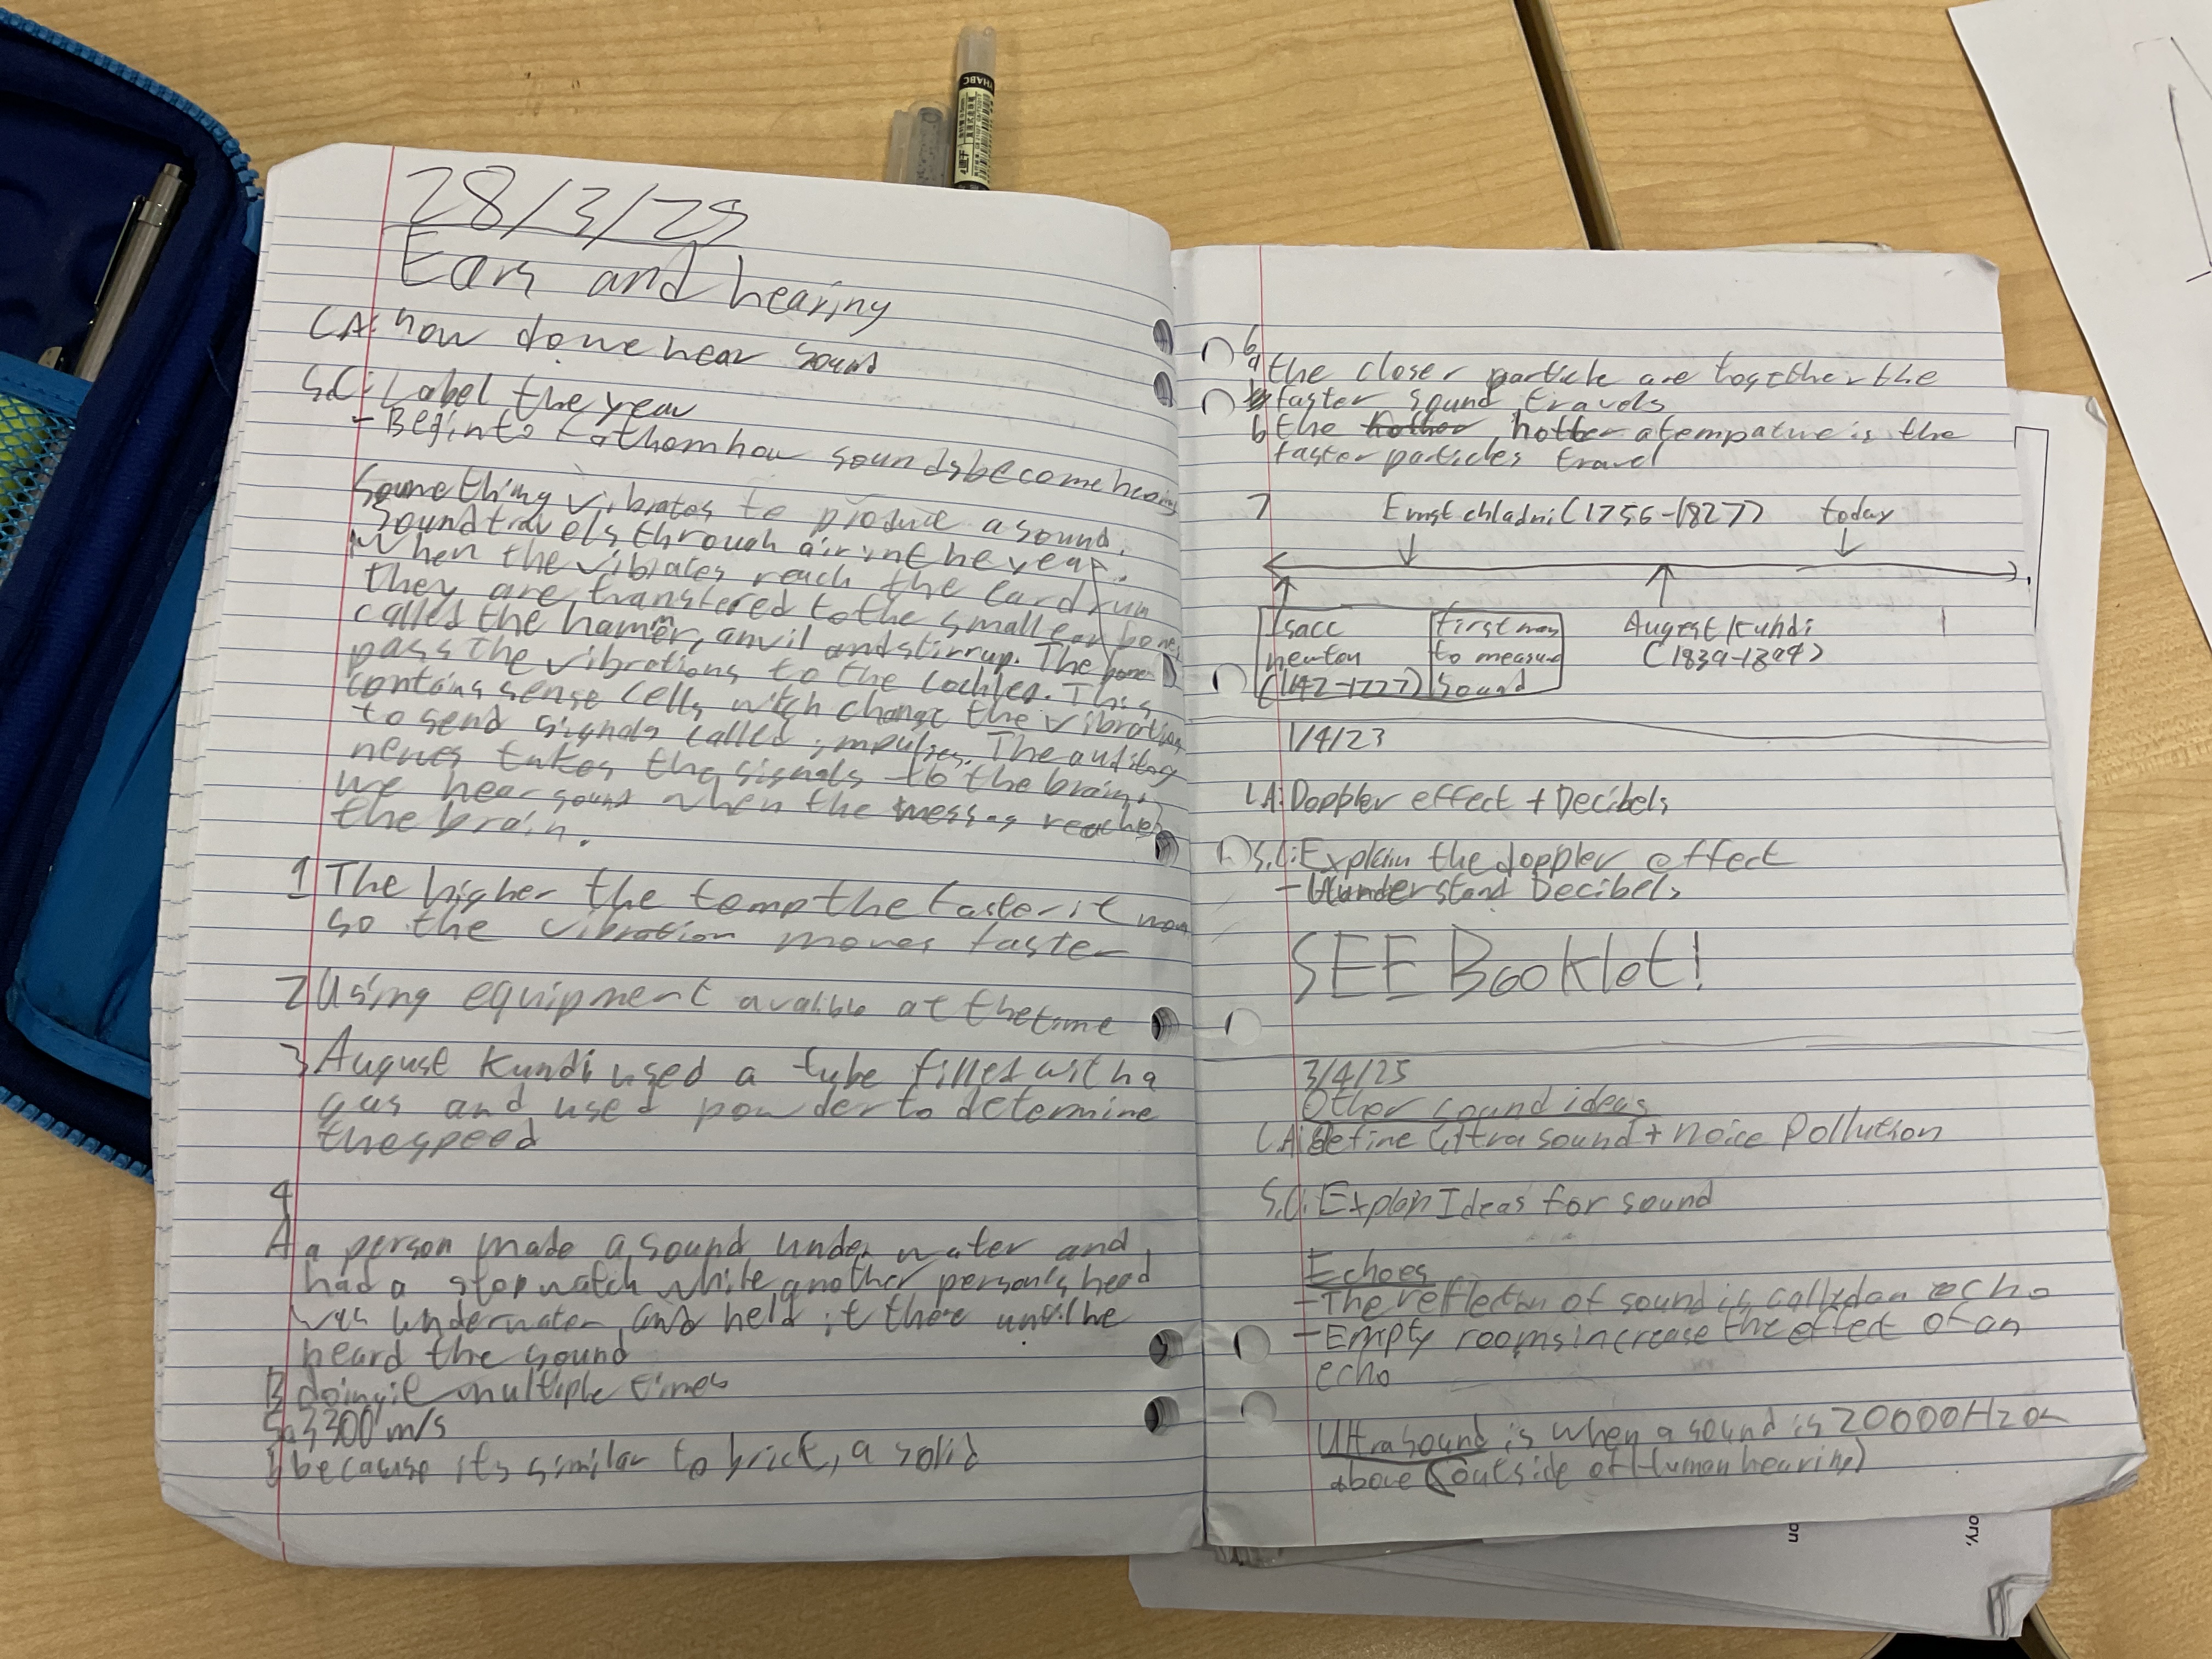 28/3/25
Ears and hearing
LA: how do we hear sound
S.C: Label the year
- Begin to fathom how sounds become hearing
Something vibrates to produce a sound.
Sound travels through air in the year.
When the vibrates reach the eardrum
they are transfered to the small ear bones
called the hammer, anvil and stirrup. The bones
pass the vibrations to the cochlea. This
contains sense cells witch change the vibration
to send signals called impulses. The auditory
nerves takes the signals to the brain.
we hear sound when the messag reaches
the brain.
1 The higher the temp the faster it moves
so the vibration moves faster
2 Using equipment avalible at the time
3 August Kundi used a tube filled with a
gas and used powder to determine
the speed
4
A a person made a sound under water and
had a stopwatch while another person's head
was underwater and held it there until he
heard the sound
B doing it multiple times
5a 3300 m/s
b because its similar to brick, a solid
6
a the closer particle are together the
faster sound travels
b the hotter hotter a tempature is the
faster particles travel
7 Ernst chladni (1756-1827) today
Isacc newton (1642-1727)
first man to measure sound
August Kundi (1839-1894)
1/4/23
LA: Doppler effect + Decibels
S.C: Explain the doppler effect
- Understand Decibels
SEE Booklet!
3/4/25
Other sound ideas
LA: define Ultra sound + noice Pollution
S.C: Explain Ideas for sound
Echoes
- The reflection of sound is called an echo
- Empty rooms increase the effect of an
echo
Ultrasound is when a sound is 20000Hz or
above (outside of Human hearing)
THABC
on
ory,